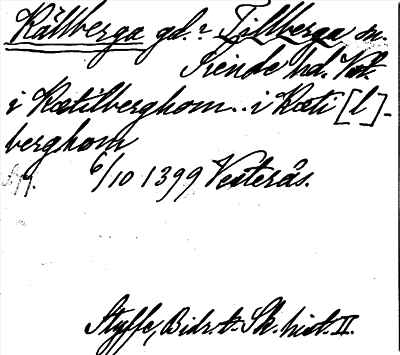 Källberga gd.? Tillberga sn.
Siende hd. Vstm.
i Kætilberghom .. i Kæti [l]-
berghom
6/10 1399 Vesterås.
Styffe, Bidr. t. Sk. hist. II.